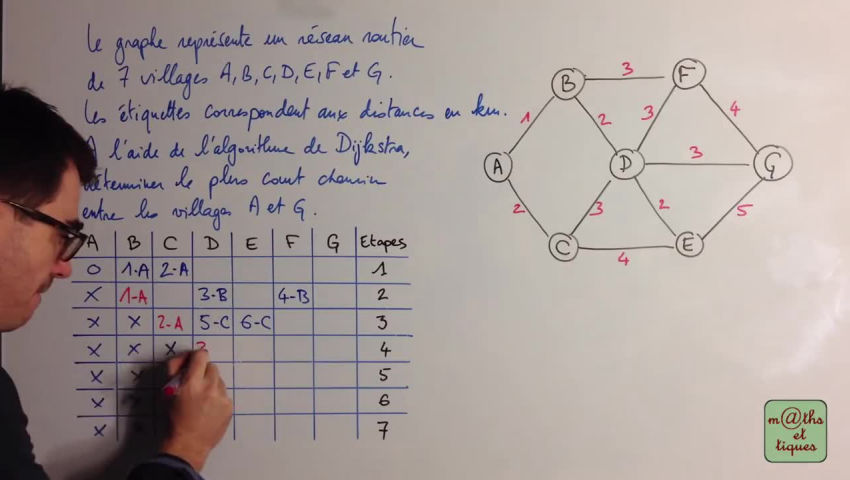 Le graphe représente un réseau routier
de 7 villages A, B, C, D, E, F et G.
Les étiquettes correspondent aux distances en km.
A l'aide de l'algorithme de Dijkstra,
déterminer le plus court chemin
entre les villages A et G.
A B C D E F G Etapes
0 1-A 2-A 1
X 1-A 3-B 4-B 2
X X 2-A 5-C 6-C 3
X X X 4
X 5
X 6
X 7
B 3 F
1 2 3 4
A D 3 G
2 3 2 5
C 4 E
m@ths
et
tiques